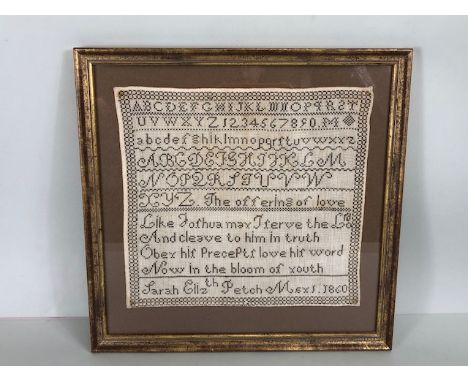 ABCDEFGHIJKLMNOPQRST
UVWXYZ1234567890.
abcdefghiklmnopqrstuvwxyz
ABCDEFGHIJKLM
NOPQRSTUVW
XYZ. The offering of love
Like Joſhua may I ſerve the Lᵒʳᵈ
And cleave to him in truth
Obey hiſ Preceptſ love hiſ word
Now in the bloom of youth
Sarah Elizᵗʰ Petch 1860